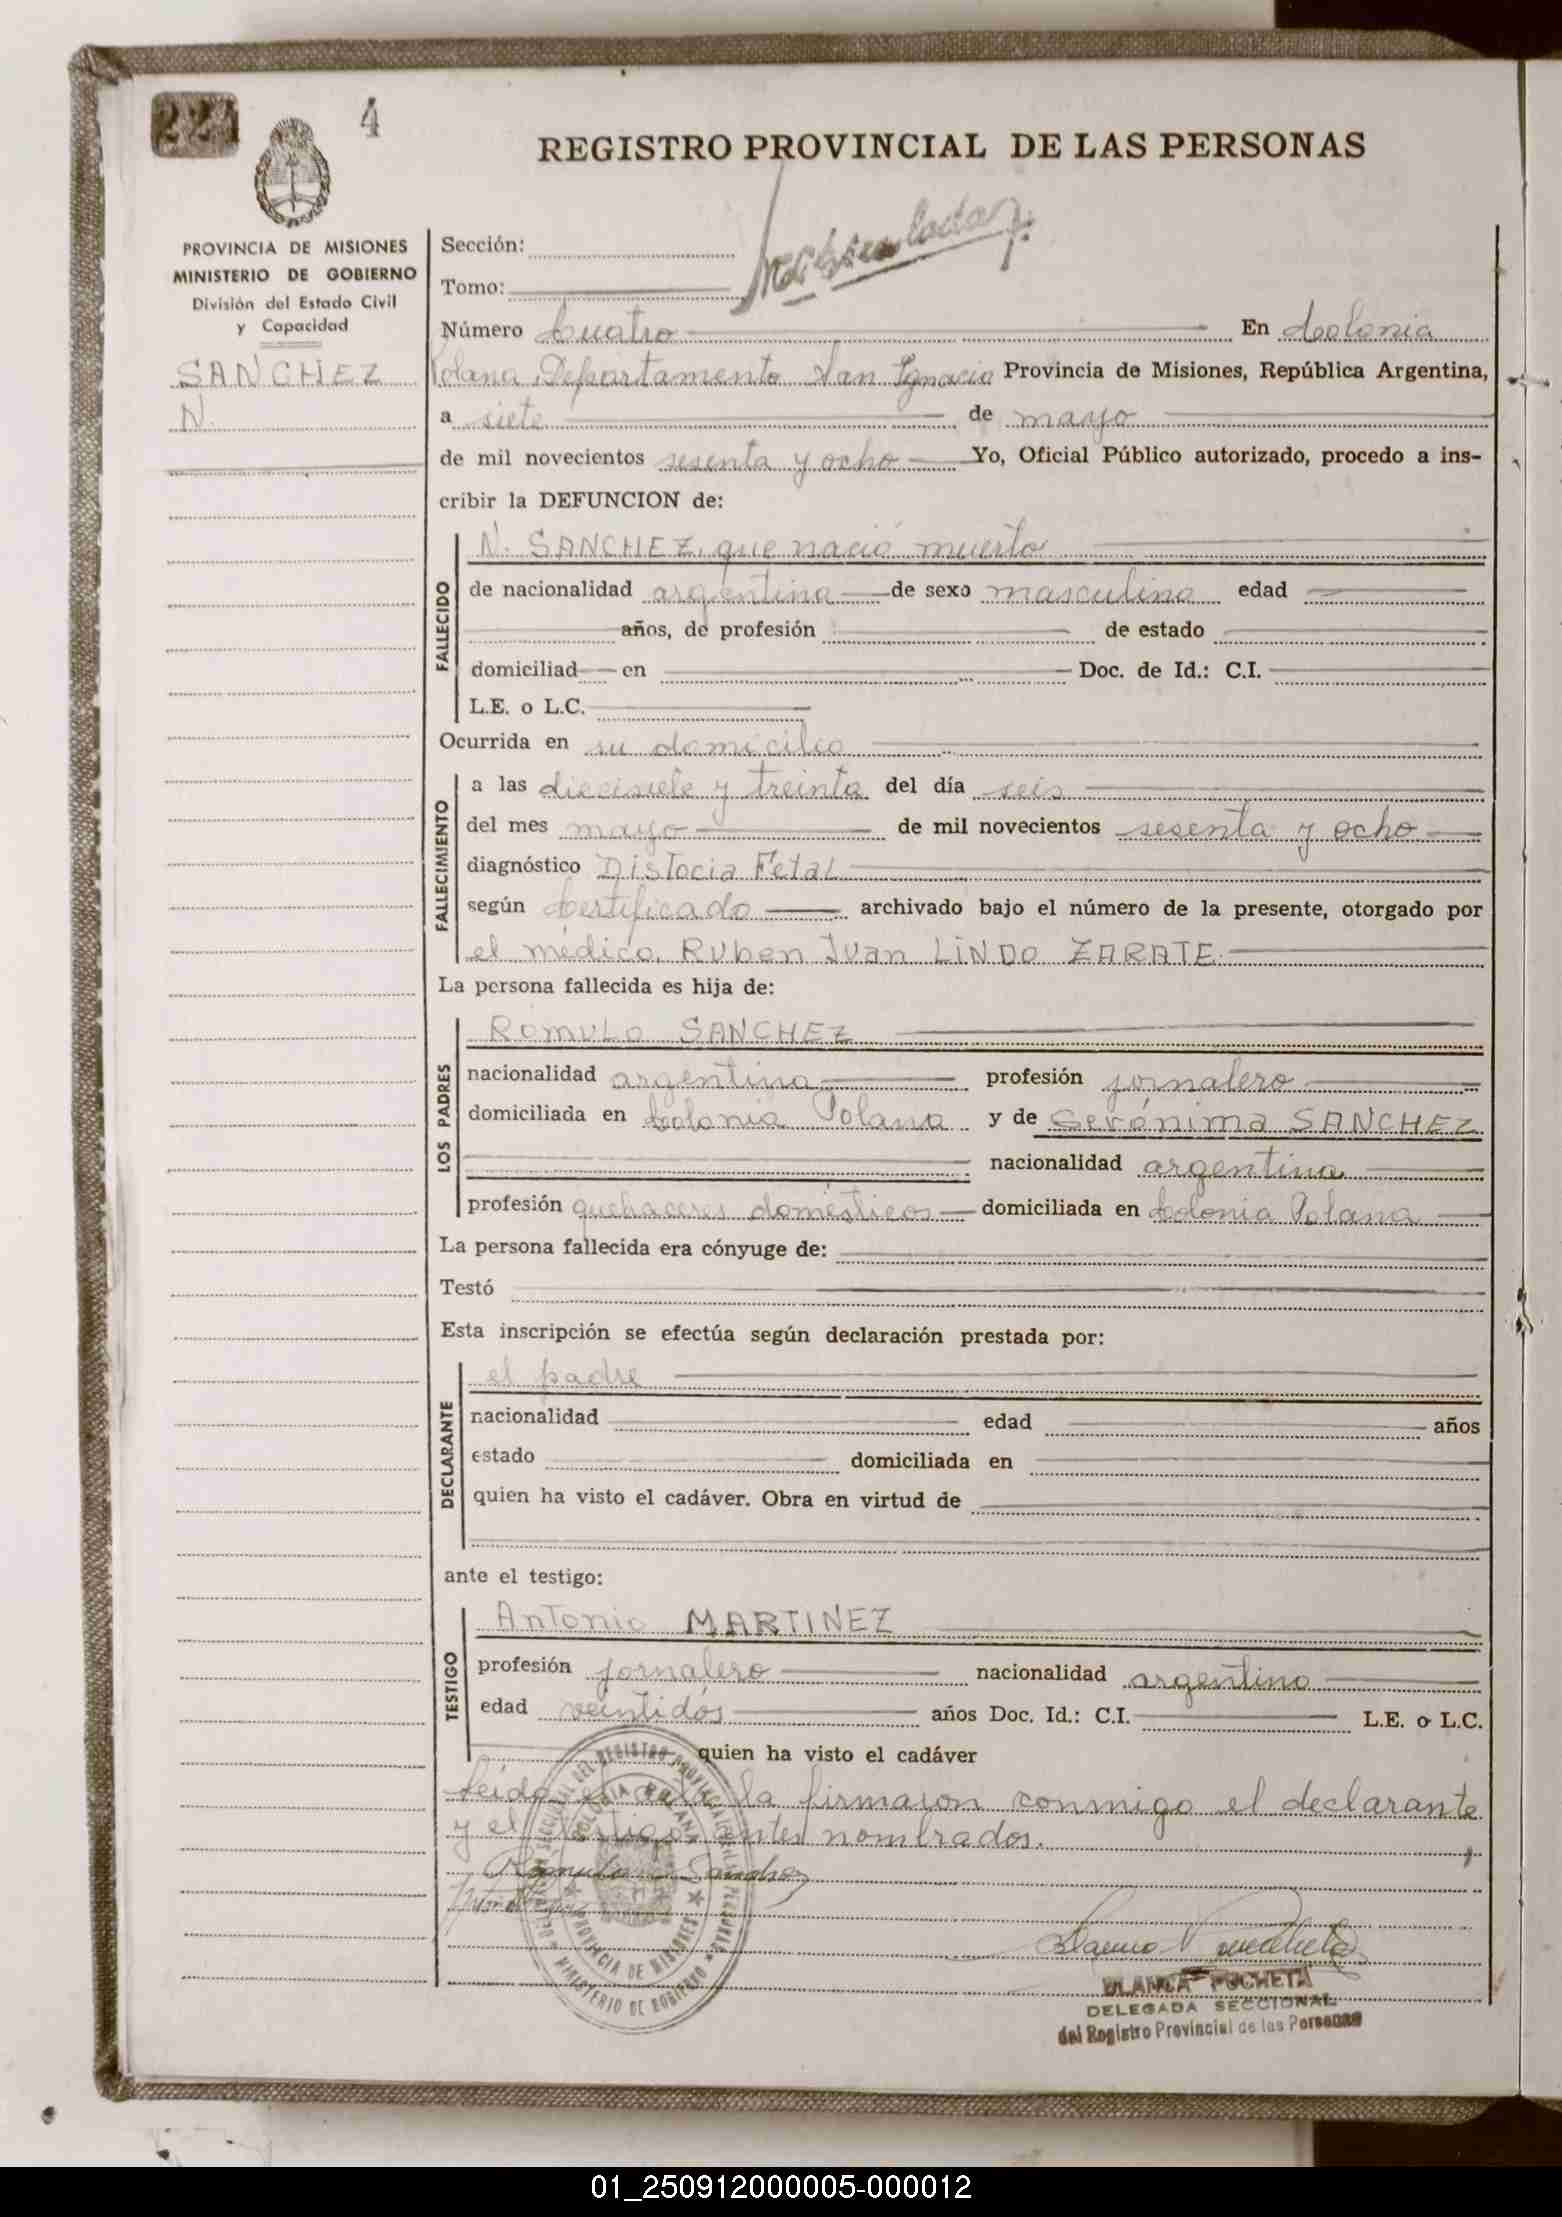 224
4
REGISTRO PROVINCIAL DE LAS PERSONAS
PROVINCIA DE MISIONES
MINISTERIO DE GOBIERNO
División del Estado Civil
y Capacidad
SANCHEZ
N.
Sección:
Tomo:
Número Cuatro En Colonia
Polana, Departamento San Ignacio Provincia de Misiones, República Argentina,
a siete de mayo
de mil novecientos sesenta y ocho Yo, Oficial Público autorizado, procedo a ins-
cribir la DEFUNCION de:
FALLECIDO
N. SANCHEZ, que nació muerto
de nacionalidad argentina de sexo masculino edad
años, de profesión de estado
domiciliad en Doc. de Id.: C.I.
L.E. o L.C.
Ocurrida en su domicilio
FALLECIMIENTO
a las diecisiete y treinta del día seis
del mes mayo de mil novecientos sesenta y ocho
diagnóstico Distocia Fetal
según Certificado archivado bajo el número de la presente, otorgado por
el médico, Ruben Juan LINDO ZARATE
La persona fallecida es hija de:
LOS PADRES
ROMULO SANCHEZ
nacionalidad argentina profesión jornalero
domiciliada en Colonia Polana y de Gerónima SANCHEZ
nacionalidad argentina
profesión quehaceres domésticos domiciliada en Colonia Polana
La persona fallecida era cónyuge de:
Testó
Esta inscripción se efectúa según declaración prestada por:
DECLARANTE
el padre
nacionalidad edad años
estado domiciliada en
quien ha visto el cadáver. Obra en virtud de
ante el testigo:
TESTIGO
Antonio MARTINEZ
profesión jornalero nacionalidad argentino
edad veintidós años Doc. Id.: C.I. L.E. o L.C.
quien ha visto el cadáver
Leída el acta, la firmaron conmigo el declarante
y el testigo antes nombrados.
Romulo Sanchez
COLONIA POLANA
PROVINCIA DE MISIONES
MINISTERIO DE GOBIERNO
BLANCA POCHETA
DELEGADA SECCIONAL
del Registro Provincial de las Personas
01_250912000005-000012